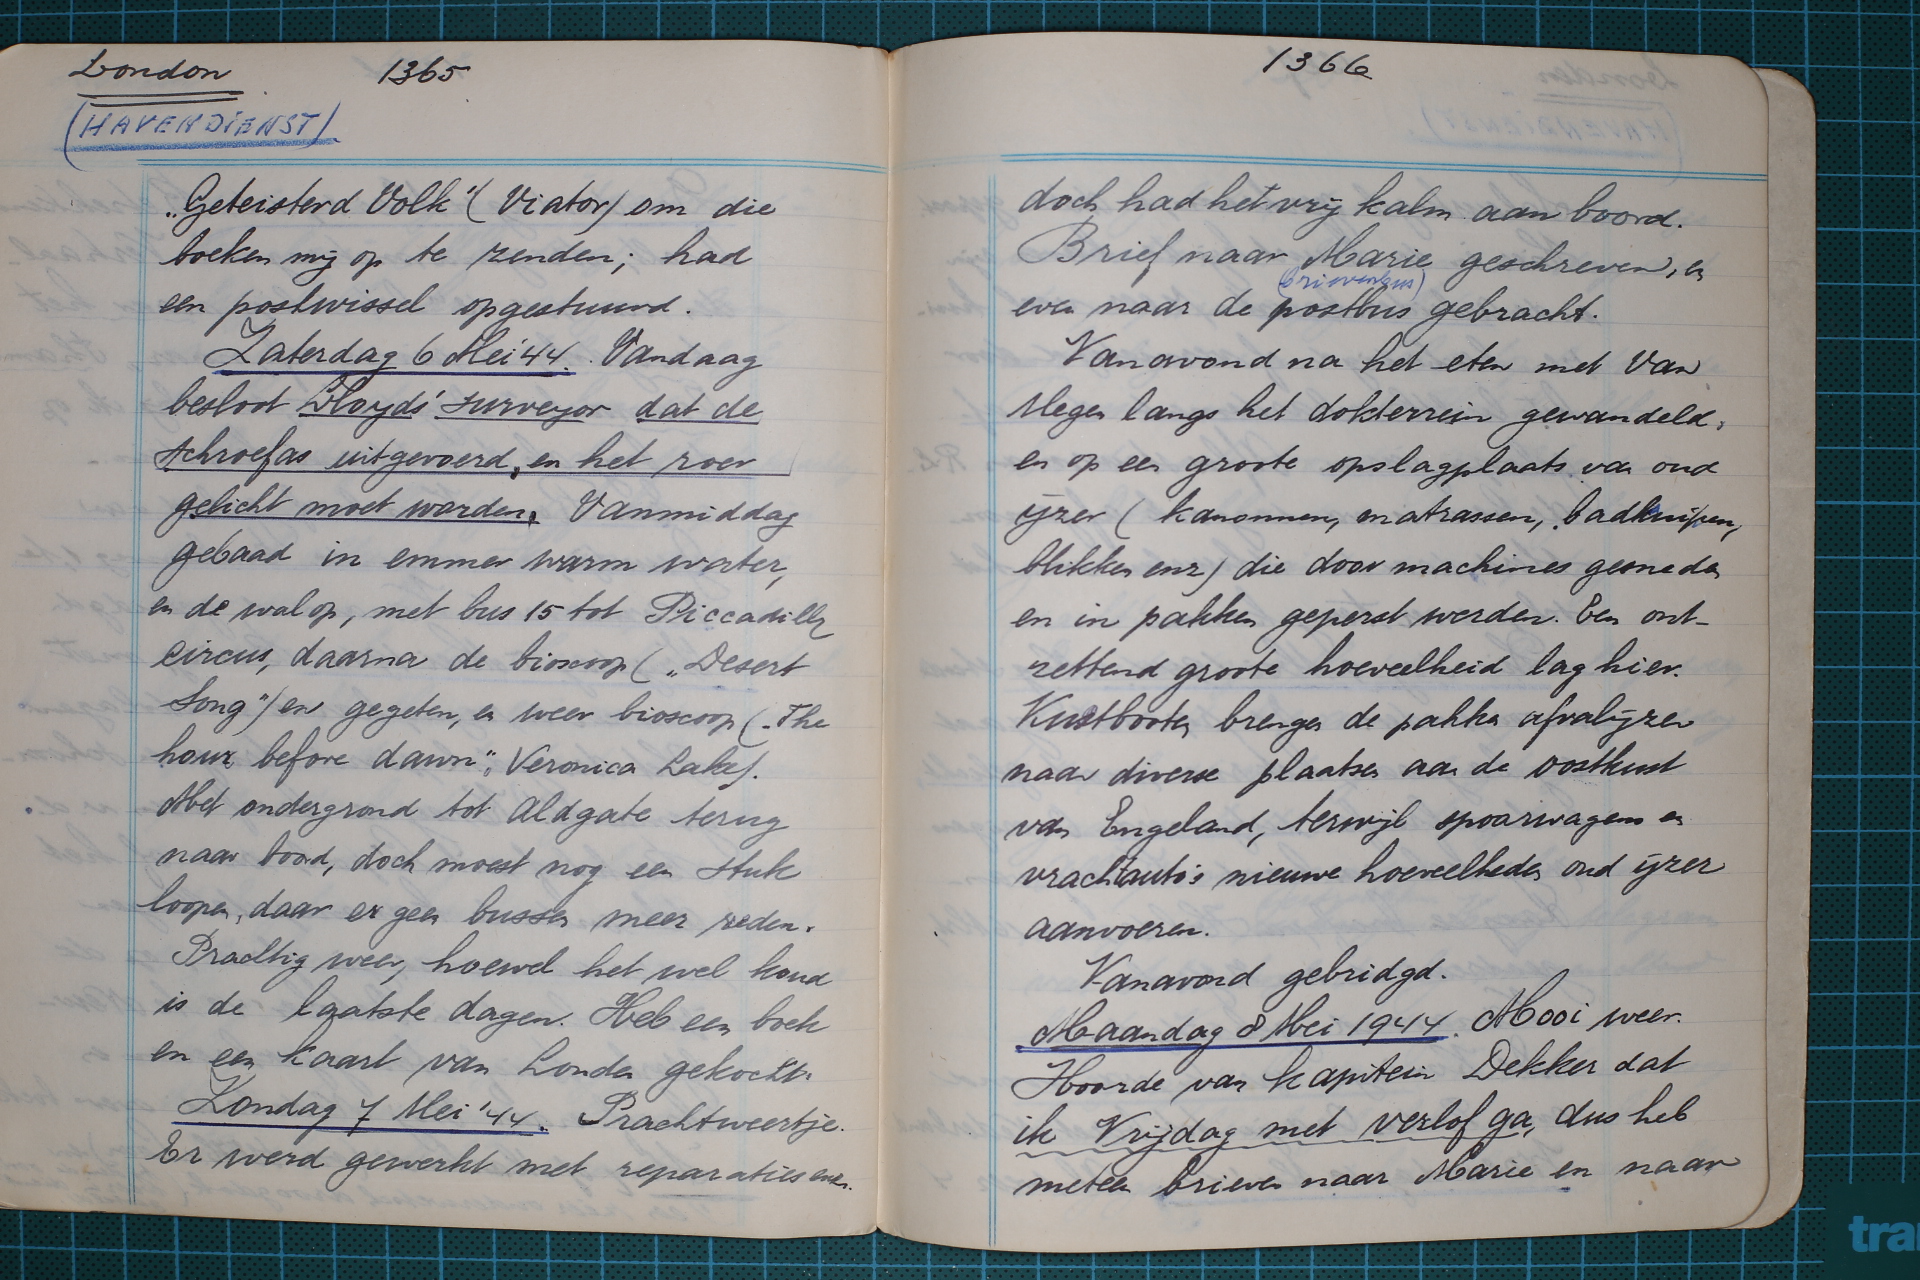 London 1365
(HAVENDIENST)
„Geteisterd Volk" (Viator) om die
boeken mij op te zenden; had
een postwissel opgestuurd.
Zaterdag 6 Mei '44. Vandaag
besloot Lloyds' surveyor dat de
schroefas uitgevoerd, en het roer
gelicht moet worden. Vanmiddag
gebaad in emmer warm water,
en de wal op, met bus 15 tot Piccadilly
Circus, daarna de bioscoop („Desert
Song") en gegeten, en weer bioscoop („The
hour before dawn", Veronica Lake).
Met ondergrond tot Aldgate terug
naar boord, doch moest nog een stuk
loopen, daar er geen bussen meer reden.
Prachtig weer, hoewel het wel koud
is de laatste dagen. Heb een boek
en een kaart van Londen gekocht.
Zondag 7 Mei '44. Prachtweertje.
Er werd gewerkt met reparaties enz.
1366
doch had het vrij kalm aan boord.
Brief naar Marie geschreven, en
(brievenbus)
even naar de postbus gebracht.
Vanavond na het eten met Van
Megen langs het dokterrein gewandeld,
en op een groote opslagplaats van oud
ijzer (kanonnen, matrassen, badkuipen,
blikken enz) die door machines gesneden
en in pakken geperst werden. Een ont-
zettend groote hoeveelheid lag hier.
Kustbooten brengen de pakken afvalijzer
naar diverse plaatsen aan de oostkust
van Engeland, terwijl spoorwagens en
vrachtauto's nieuwe hoeveelheden oud ijzer
aanvoeren.
Vanavond gebridgd.
Maandag 8 Mei 1944. Mooi weer.
Hoorde van kapitein Dekker dat
ik Vrijdag met verlof ga, dus heb
meteen brieven naar Marie en naar
tra